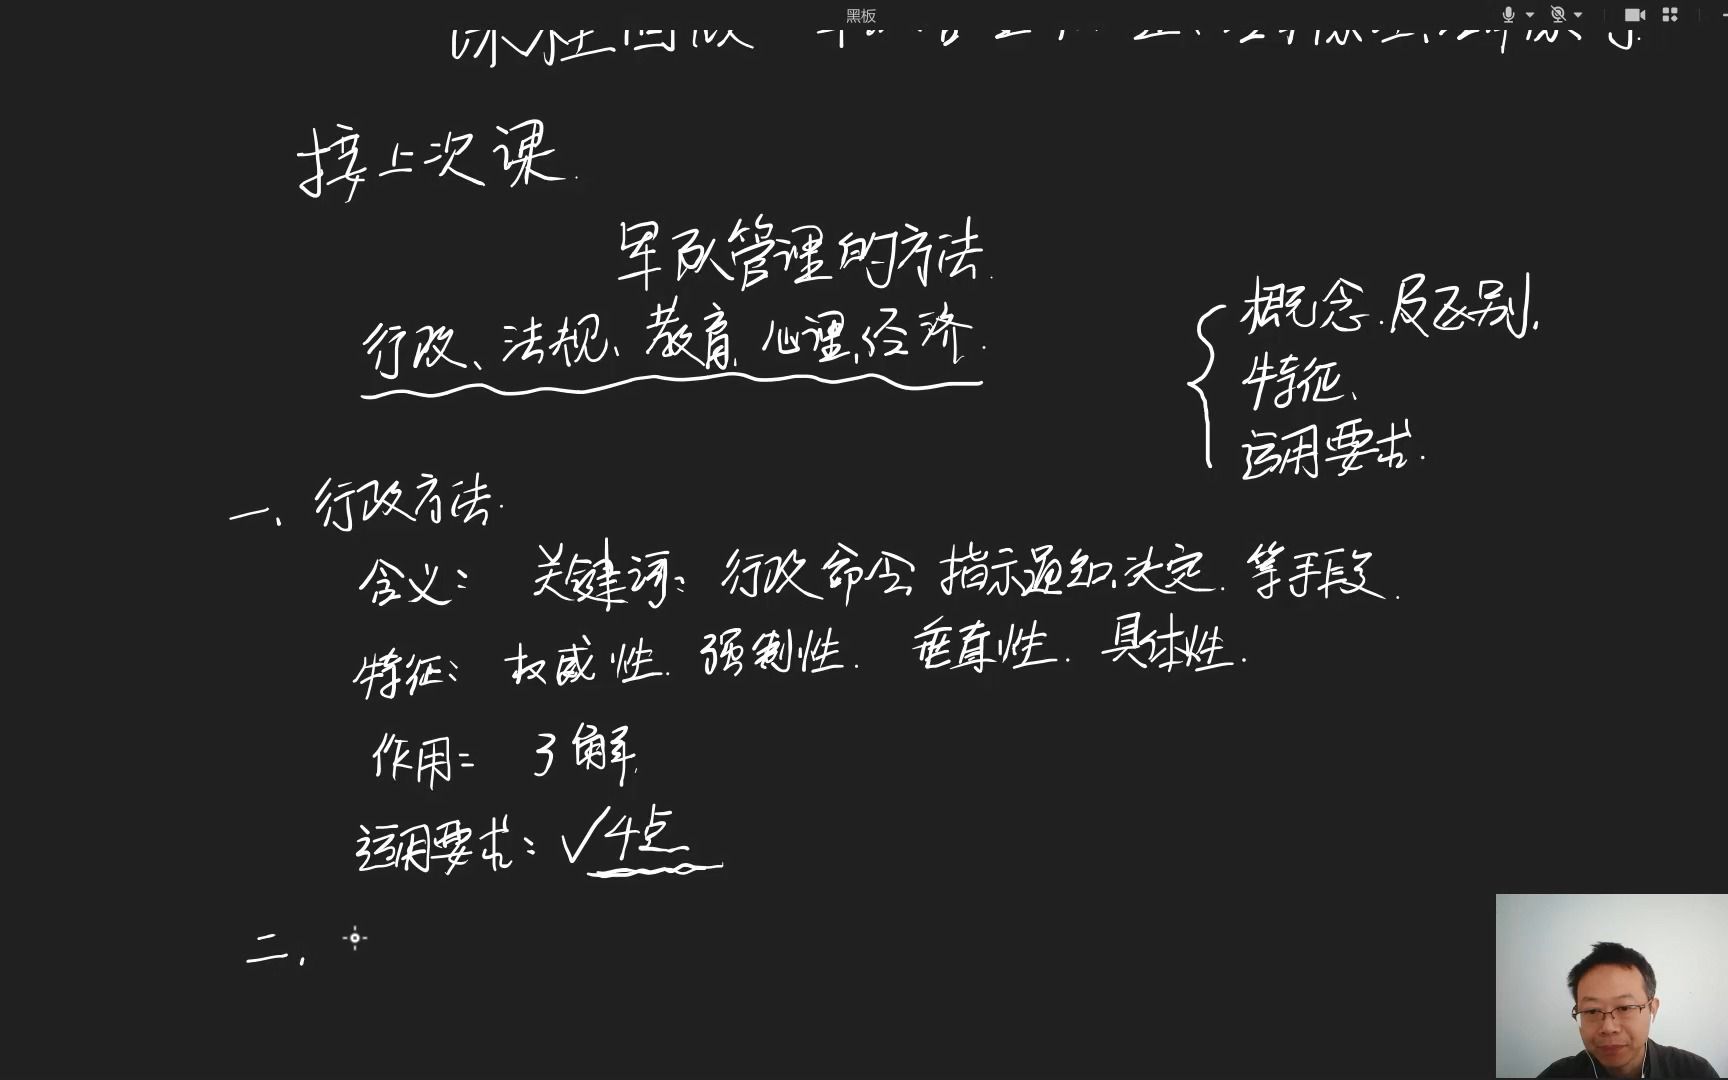 黑板
接上次课.
军队管理的方法.
行政、法规、教育、心理、经济.
概念.及区别,
特征、
运用要求.
一、行政方法.
含义: 关键词: 行政命令 指示通知、决定. 等手段.
特征: 权威性. 强制性. 垂直性. 具体性.
作用: 了解.
运用要求: √4点
二、